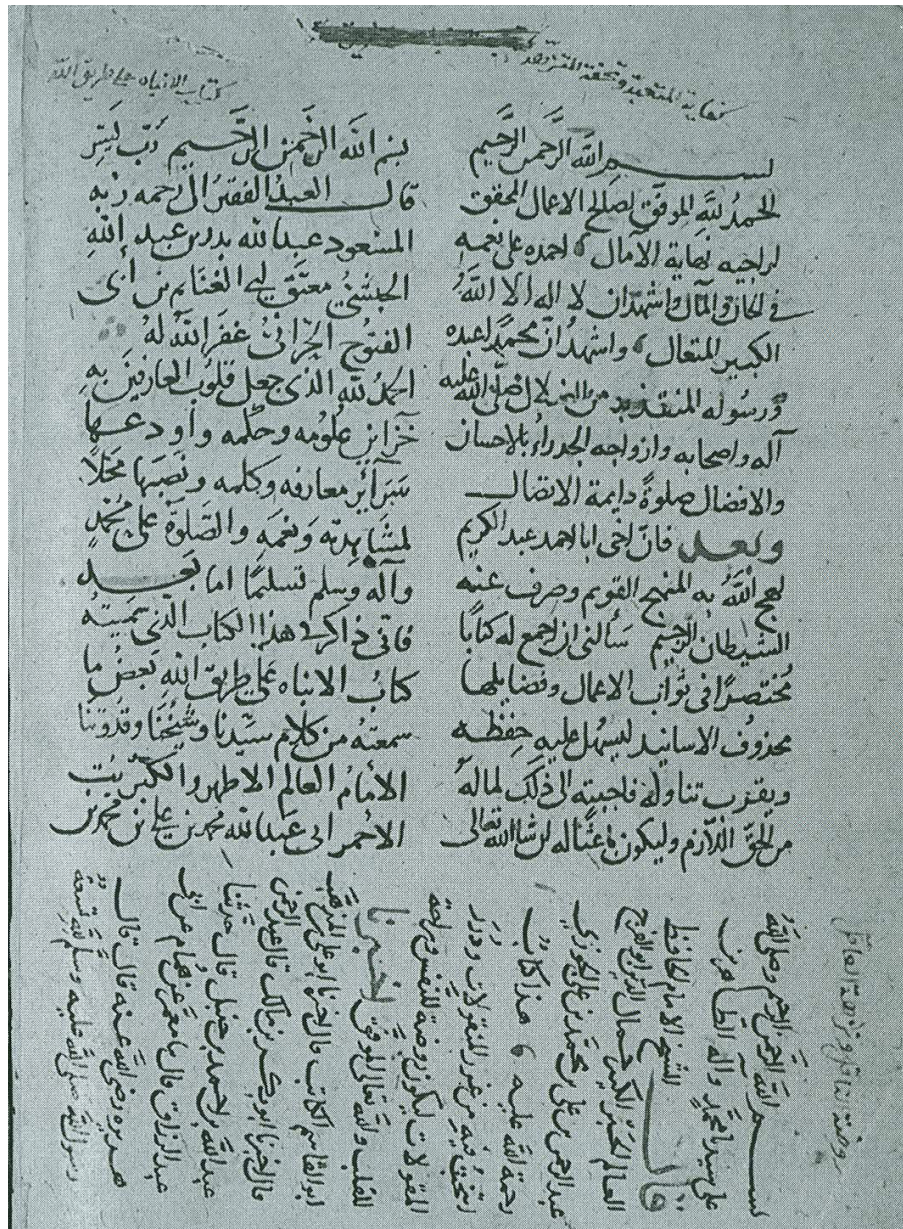 كفاية المتعبد وتحفة المتزهد
بسم الله الرحمن الرحيم
الحمد لله الموفق لصالح الاعمال المحقق
لراجيه نهاية الامال احمده على نعمه
في الحال والمآل واشهد ان لا اله الا الله
الكبير المتعال واشهد ان محمدا عبده
ورسوله المنقذ به من الضلال صلى الله عليه
آله واصحابه وازواجه الجدراء بالاحسان
والافضال صلوة دايمة الاتصال
وبعد فان اخي ابا احمد عبد الكريم
نهج الله به المنهج القويم وصرف عنه
الشيطان الرجيم سألني ان اجمع له كتابا
مختصرا في ثواب الاعمال وفضايلها
محذوف الاسانيد ليسهل عليه حفظه
ويقرب تناوله فاجبته الى ذلك لماله
من الحق اللازم وليكون باعثا له ان شا الله تعالى
كتاب الانباه على طريق الله
بسم الله الرحمن الرحيم رب يسر
قال العبد الفقير الى رحمه ربه
المسعود عبد الله بدر بن عبد الله
الحبشي معتق ابي الغنايم بن ابي
الفتوح الحراني غفر الله له
الحمد لله الذي جعل قلوب العارفين به
خزاين علومه وحكمه واودعها
سرآئر معارفه وكلمه ونصبها محلا
لمشاهدته ونعمه والصلوة على محمد
وآله وسلم تسليما اما بعد
فاني ذاكر في هذا الكتاب الذي سميته
كتاب الانباه على طريق الله بعض ما
سمعته من كلام سيدنا وشيخنا وقدوتنا
الامام العالم الاطهر والكبريت
الاحمر ابي عبد الله محمد بن علي بن محمد بن
روضة الناقل ونزهة العاقل
بسم الله الرحمن الرحيم وصلى الله
على سيدنا محمد واله الطاهرين
قال الشيخ الامام الحافظ
العالم الحبر الكبير جمال الدين ابو الفرج
عبد الرحمن بن علي بن محمد بن علي الجوزي
رحمة الله عليه هذا كتاب
انتخبت فيه من غرر المنقولات ودرر
المقولات ليكون روضة للنفس وراحة
للقلب والله تعالى الموفق اخبرنا
ابو القاسم الكاتب قال اخبرنا ابو علي المذهب
قال اخبرنا ابو بكر بن مالك قال
عبد الله بن احمد بن حنبل قال حدثنا
عبد الرزاق قال نا معمر عن همام عن ابي
هريره رضي الله عنه قال قال
رسول الله صلى الله عليه وسلم لله تسعة